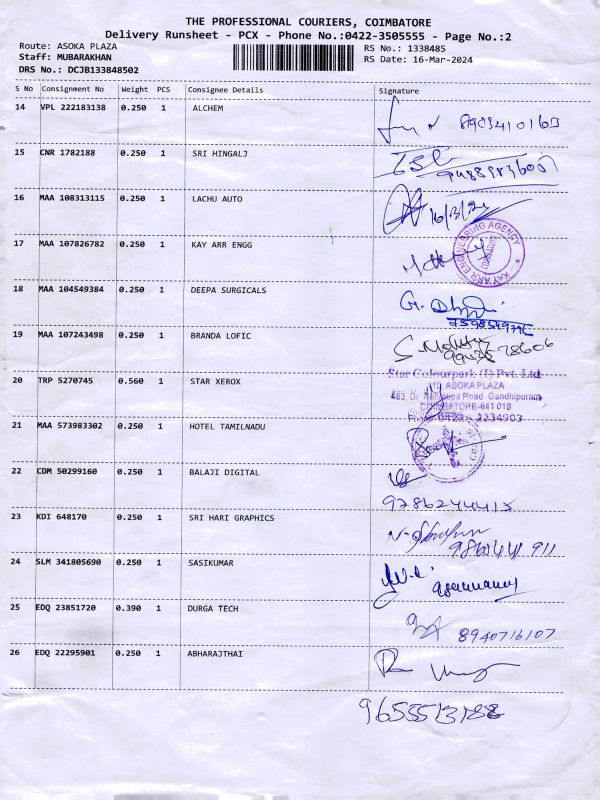 THE PROFESSIONAL COURIERS, COIMBATORE
Delivery Runsheet - PCX - Phone No.:0422-3505555 - Page No.:2
Route: ASOKA PLAZA RS No.: 1338485
Staff: MUBARAKHAN RS Date: 16-Mar-2024
DRS No.: DCJB133848502
S No Consignment No Weight PCS Consignee Details Signature
14 VPL 222183138 0.250 1 ALCHEM
15 CNR 1782188 0.250 1 SRI HINGALJ
16 MAA 108313115 0.250 1 LACHU AUTO 16/3/24
17 MAA 107826782 0.250 1 KAY ARR ENGG
KAY ARR ENGINEERING AGENCY
18 MAA 104549384 0.250 1 DEEPA SURGICALS
19 MAA 107243498 0.250 1 BRANDA LOFIC
20 TRP 5270745 0.560 1 STAR XEROX
Star Colourpark (I) Pvt. Ltd
ASOKA PLAZA
483, Dr. Road Gandhipuram
COIMBATORE-641 018
Phone 0422 - 2234903
21 MAA 573983302 0.250 1 HOTEL TAMILNADU
22 CDM 50299160 0.250 1 BALAJI DIGITAL
9786244415
23 KDI 648170 0.250 1 SRI HARI GRAPHICS
24 SLM 341805690 0.250 1 SASIKUMAR
25 EDQ 23851720 0.390 1 DURGA TECH
8940716107
26 EDQ 22295901 0.250 1 ABHARAJTHAI